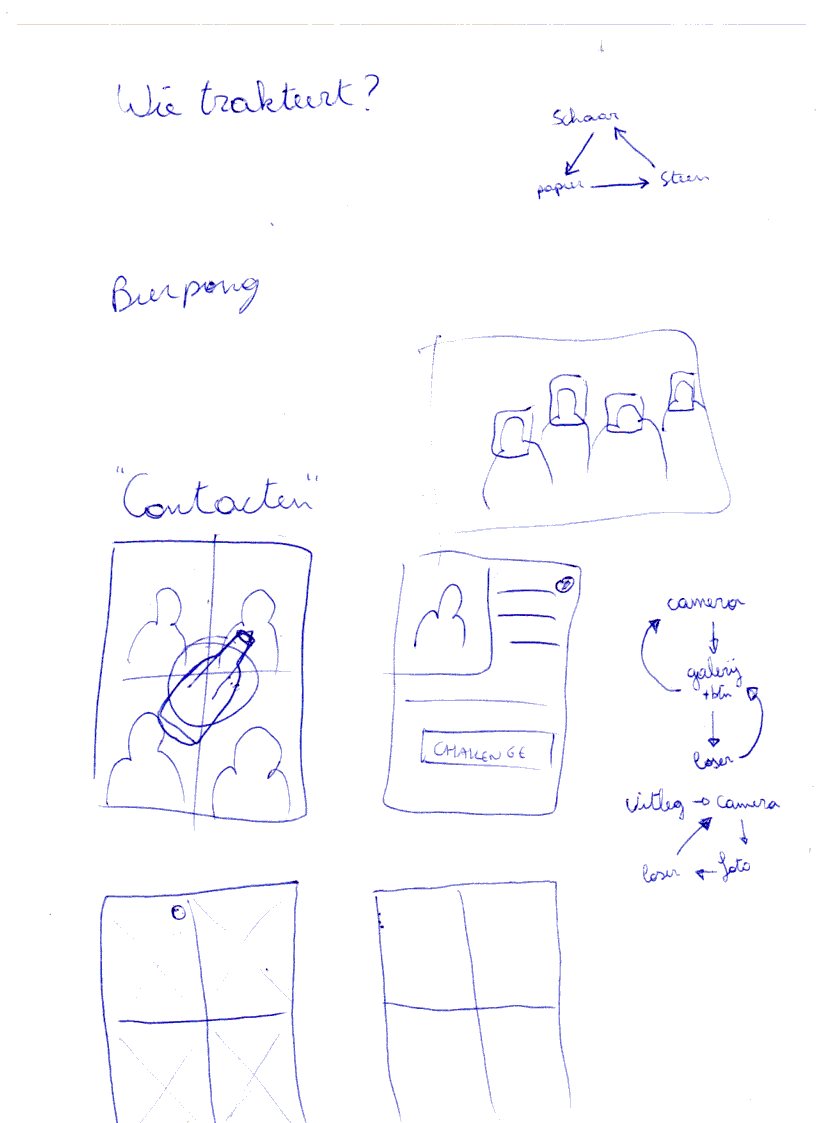 Wie trakteert?
Schaar
papier
Steen
Bierpong
"Contacten"
CHALLENGE
camera
galerij
+btn
loser
Uitleg → camera
loser ← foto